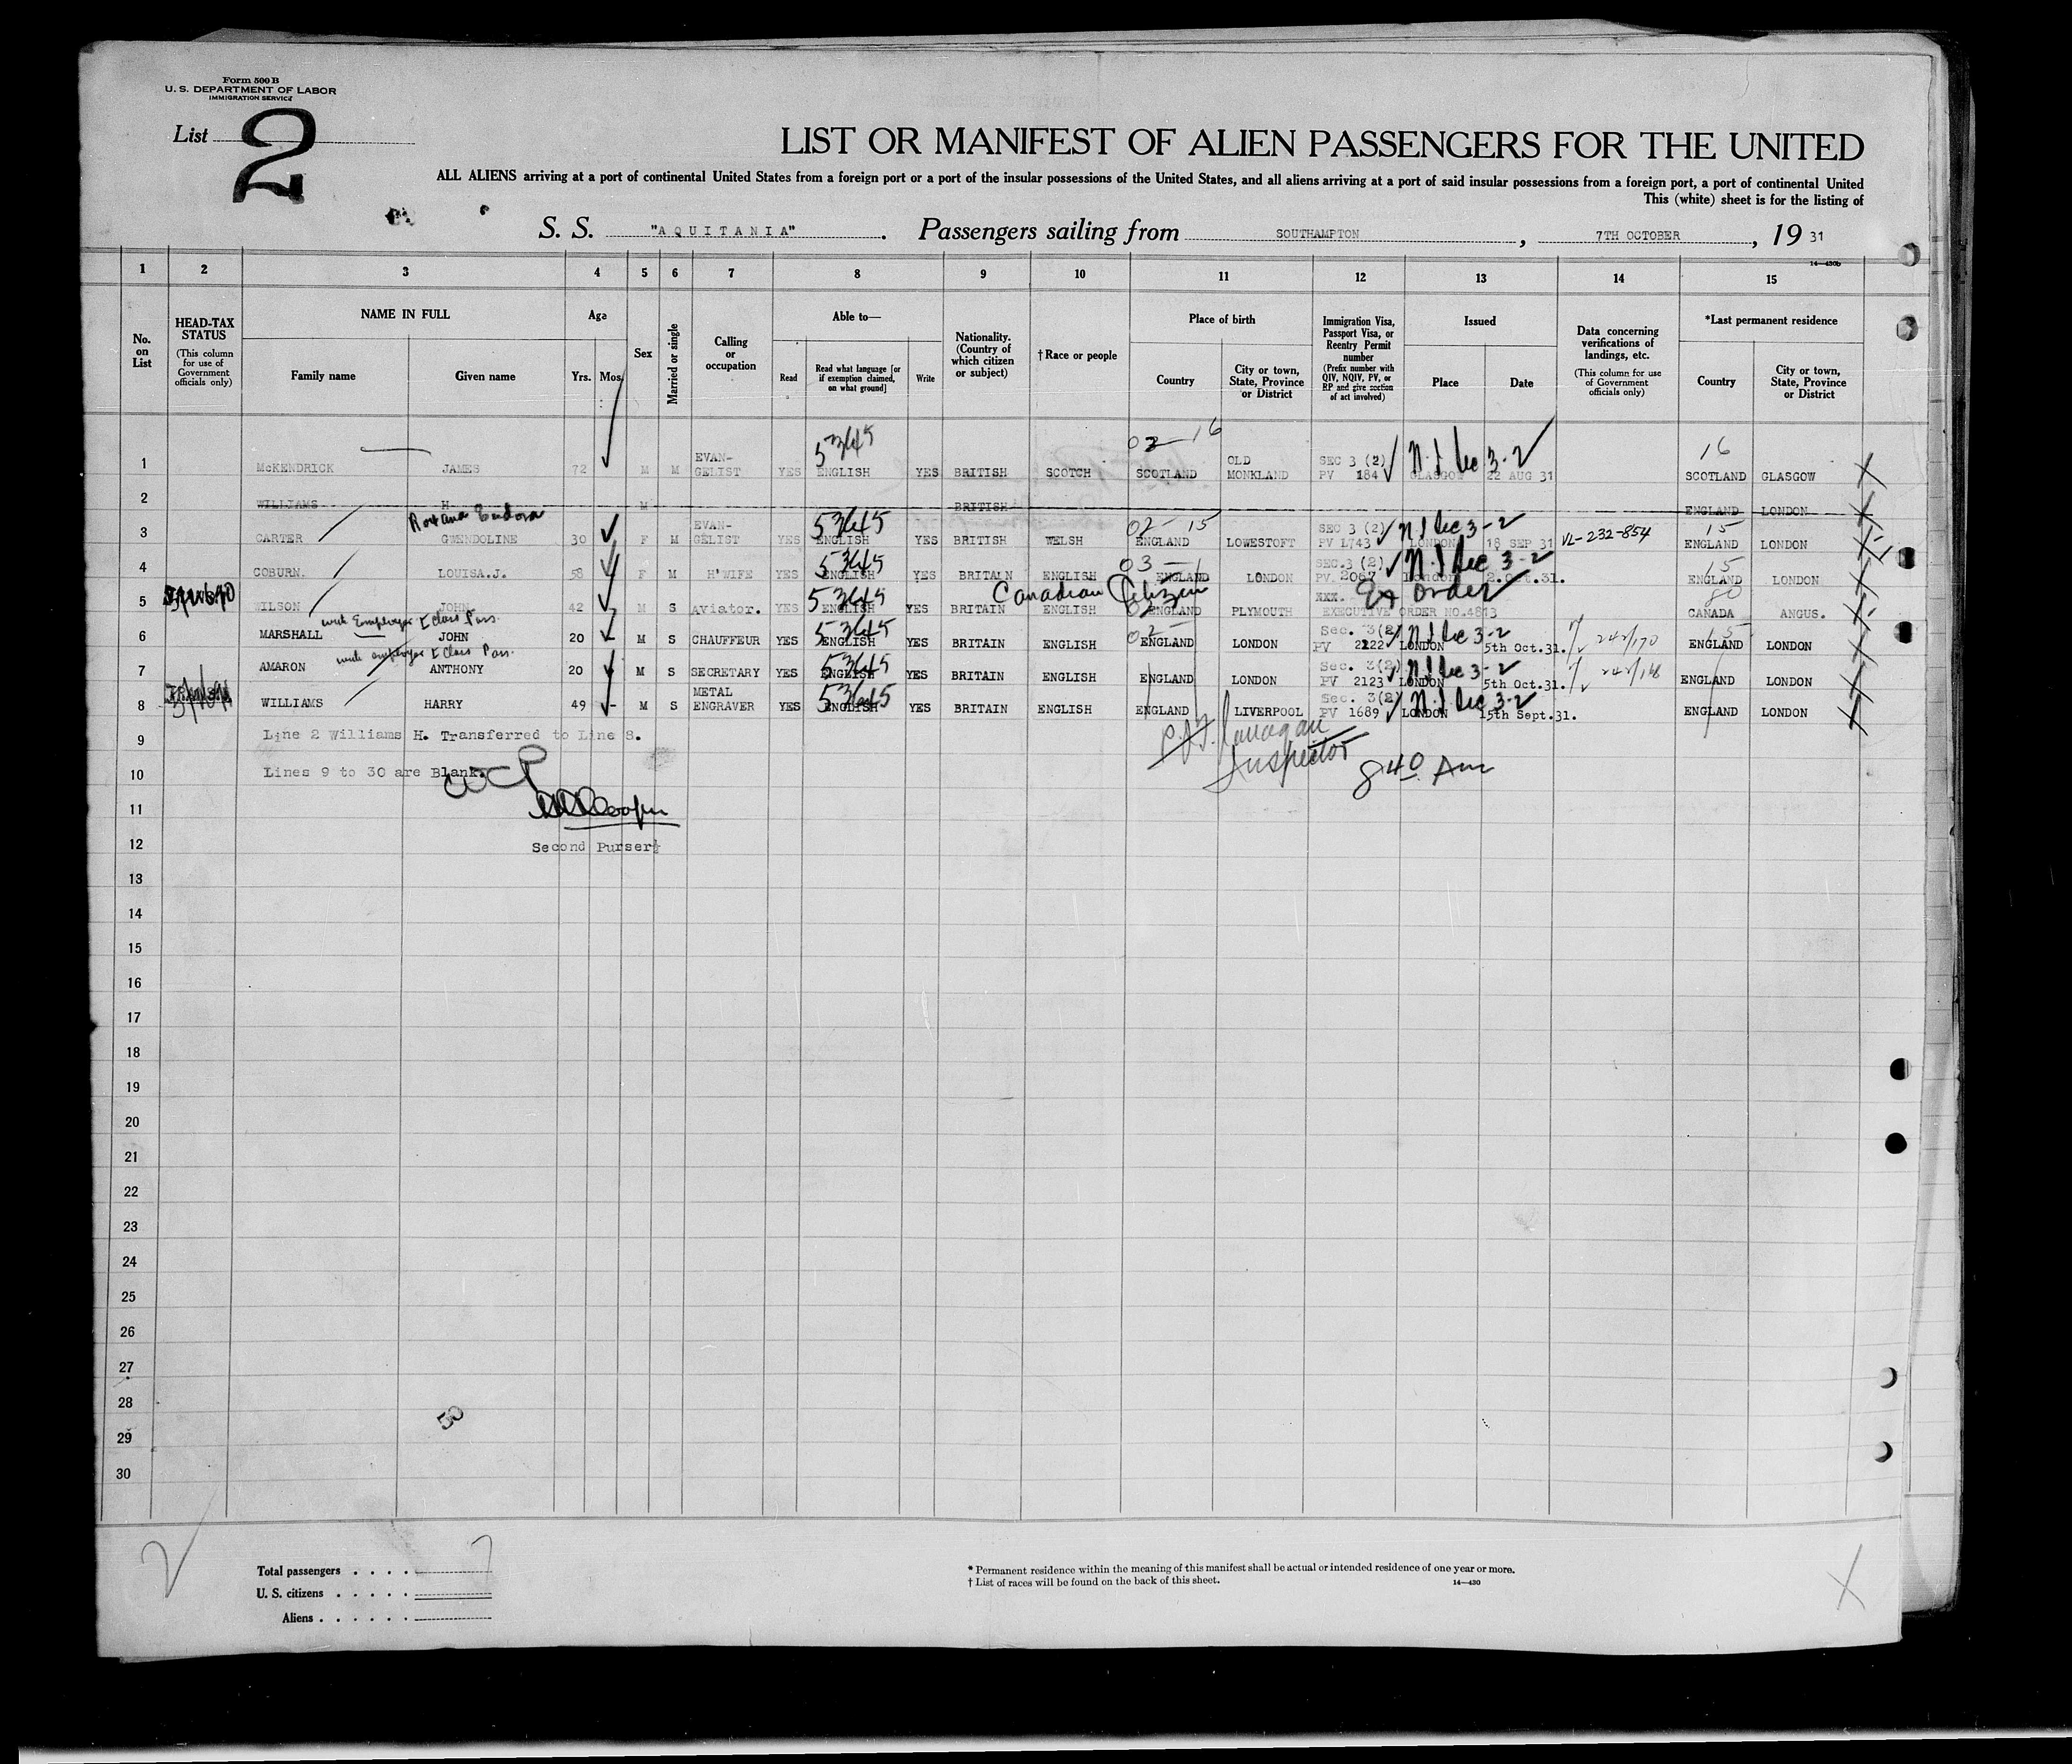 Form 500 B
U. S. DEPARTMENT OF LABOR
IMMIGRATION SERVICE
List 2
LIST OR MANIFEST OF ALIEN PASSENGERS FOR THE UNITED
ALL ALIENS arriving at a port of continental United States from a foreign port or a port of the insular possessions of the United States, and all aliens arriving at a port of said insular possessions from a foreign port, a port of continental United
This (white) sheet is for the listing of
S. S. "AQUITANIA" . Passengers sailing from SOUTHAMPTON , 7TH OCTOBER , 19 31
14—430b
1 2 3 4 5 6 7 8 9 10 11 12 13 14 15
No. on List
HEAD-TAX STATUS (This column for use of Government officials only)
NAME IN FULL Family name Given name
Age Yrs. Mos.
Sex
Married or single
Calling or occupation
Able to— Read Read what language [or if exemption claimed, on what ground] Write
Nationality. (Country of which citizen or subject)
†Race or people
Place of birth Country City or town, State, Province or District
Immigration Visa, Passport Visa, or Reentry Permit number (Prefix number with QIV, NQIV, PV, or RP and give section of act involved)
Issued Place Date
Data concerning verifications of landings, etc. (This column for use of Government officials only)
*Last permanent residence Country City or town, State, Province or District
53645 02-16 N.I Sec 3-2 16
1 McKENDRICK JAMES 72 M M EVAN-GELIST YES ENGLISH YES BRITISH SCOTCH SCOTLAND OLD MONKLAND SEC 3 (2) PV 184 GLASGOW 22 AUG 31 SCOTLAND GLASGOW
2 WILLIAMS H. M BRITISH ENGLAND LONDON
Roxana 53645 02-15 N I Sec 3-2 VL-232-854 15
3 CARTER GWENDOLINE 30 F M EVAN-GELIST YES ENGLISH YES BRITISH WELSH ENGLAND LOWESTOFT SEC 3 (2) PV 1743 LONDON 18 SEP 31 ENGLAND LONDON
53645 03- N I Sec 3-2 15
4 COBURN. LOUISA.J. 58 F M H'WIFE YES ENGLISH YES BRITAIN ENGLISH ENGLAND LONDON SEC.3 (2) PV. 2067 London 2.Oct.31. ENGLAND LONDON
53645 Canadian Citizen Ex Order 80
5 WILSON JOHN 42 M S Aviator. YES ENGLISH YES BRITAIN ENGLISH ENGLAND PLYMOUTH XXX. EXECUTIVE ORDER NO.4813 CANADA ANGUS.
with Employer I Class Pass. 53645 02- N I Sec 3-2 242/170 15
6 MARSHALL JOHN 20 M S CHAUFFEUR YES ENGLISH YES BRITAIN ENGLISH ENGLAND LONDON Sec. 3(2) PV 2122 LONDON 5th Oct.31. ENGLAND LONDON
with employer I Class Pass. 53645 N I Sec 3-2 242/168
7 AMARON ANTHONY 20 M S SECRETARY YES ENGLISH YES BRITAIN ENGLISH ENGLAND LONDON Sec. 3(2) PV 2123 LONDON 5th Oct.31. ENGLAND LONDON
53645 N I Sec 3-2
8 WILLIAMS HARRY 49 M S METAL ENGRAVER YES ENGLISH YES BRITAIN ENGLISH ENGLAND LIVERPOOL Sec. 3(2) PV 1689 LONDON 15th Sept.31. ENGLAND LONDON
9 Line 2 Williams H. Transferred to Line 8.
Flanagan
Inspector
8 40 Am
10 Lines 9 to 30 are Blank.
11 Cooper
12 Second Purser.
13
14
15
16
17
18
19
20
21
22
23
24
25
26
27
28
29
30
Total passengers . . . . 7
U. S. citizens . . . . .
Aliens . . . . . .
* Permanent residence within the meaning of this manifest shall be actual or intended residence of one year or more.
† List of races will be found on the back of this sheet.
14—430